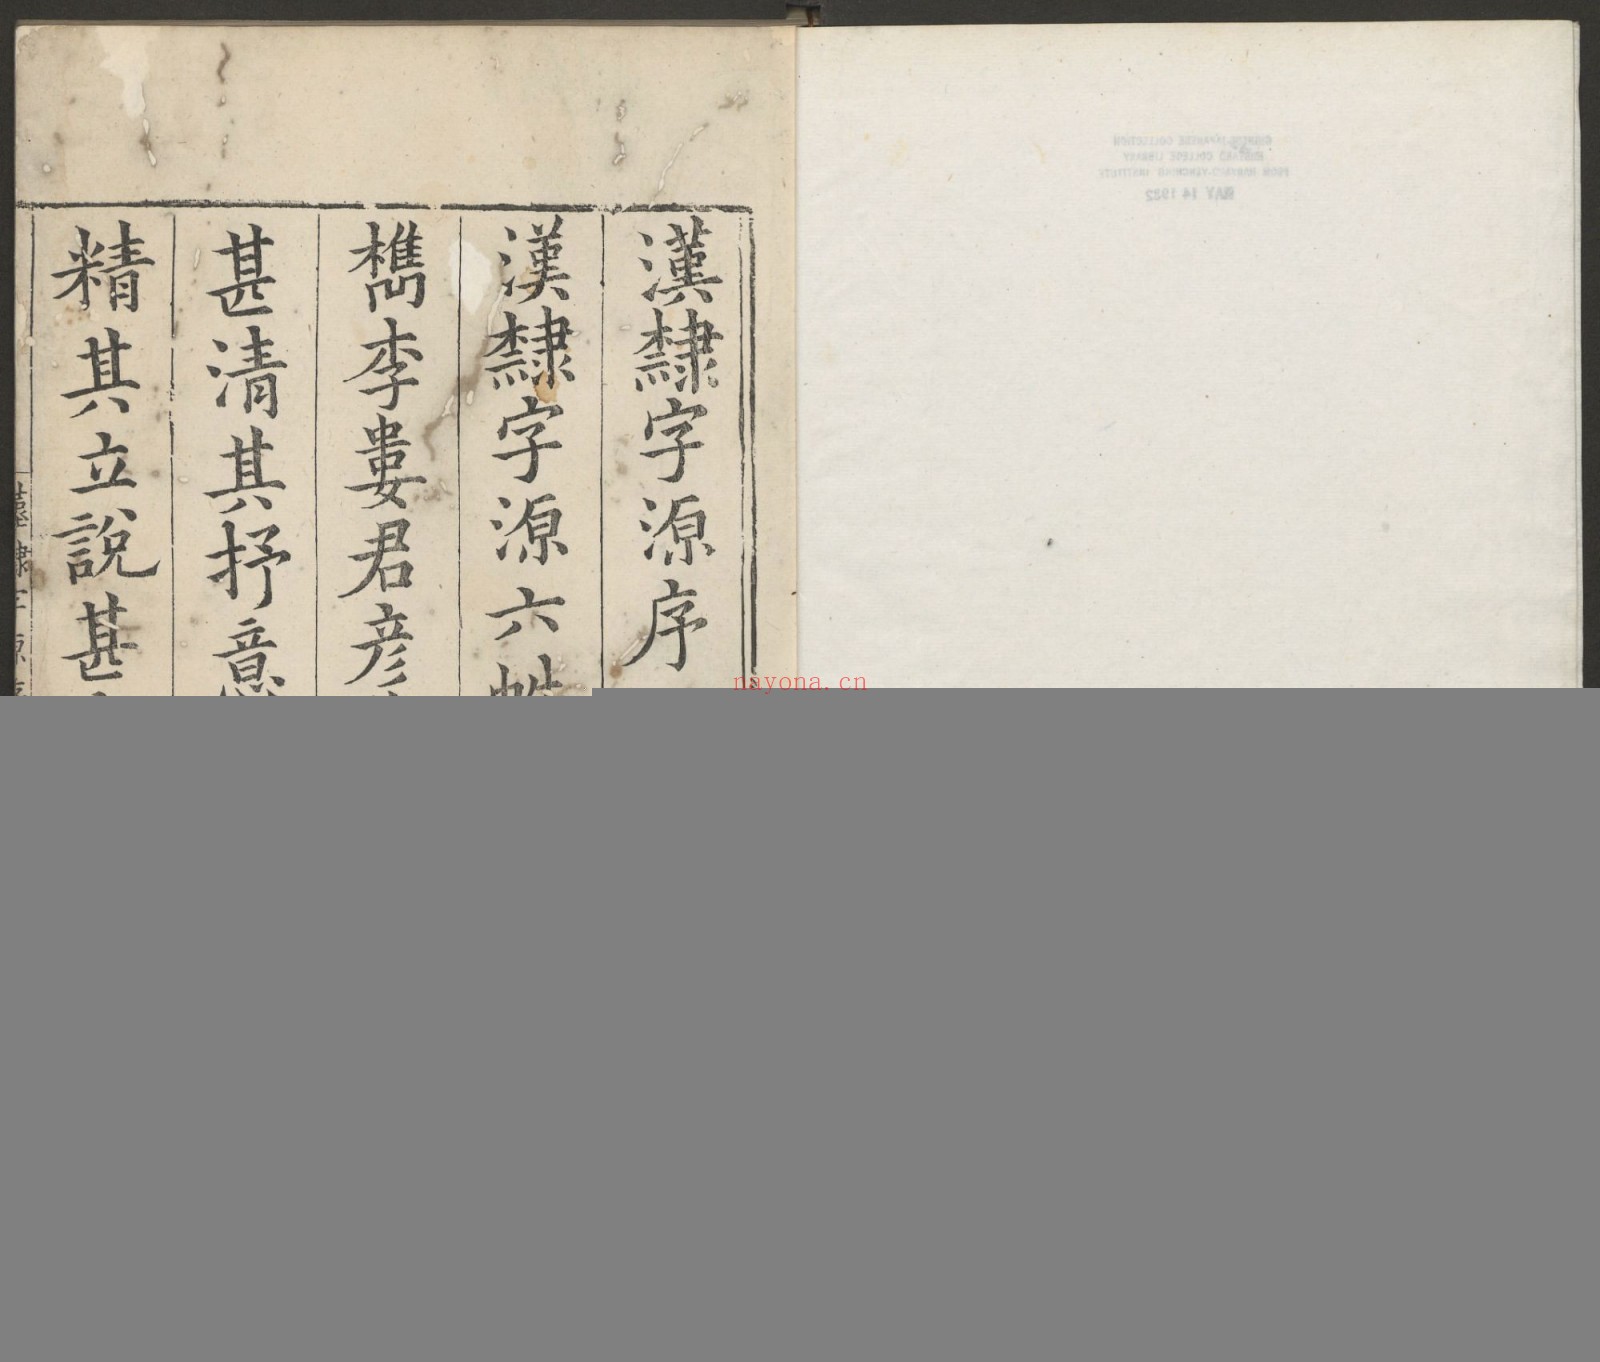 漢隸字源序
漢隸字源六
檇李婁君彦
甚清其抒意
精其立說甚
nayona.cn
CHINESE-JAPANESE COLLECTION
HARVARD COLLEGE LIBRARY
FROM HARVARD-YENCHING INSTITUTE
MAY 14 1932